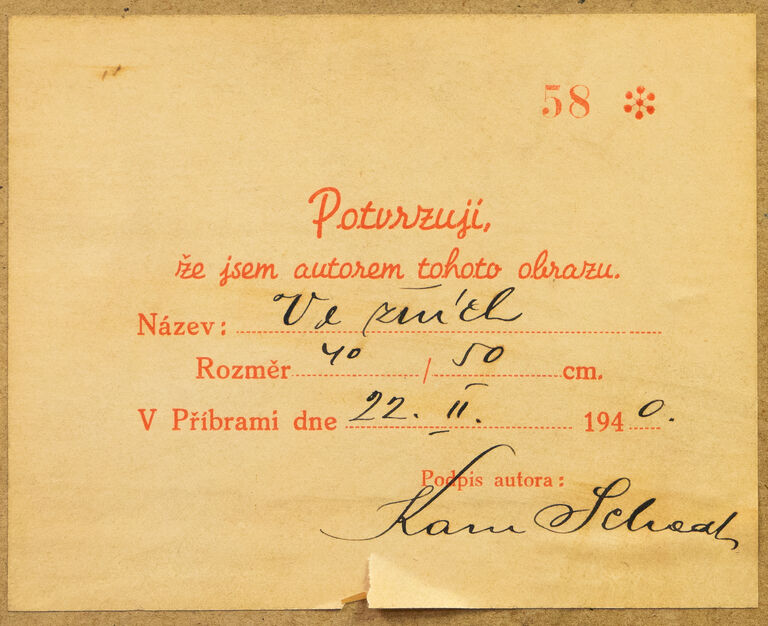 58 *
Potvrzuji,
že jsem autorem tohoto obrazu.
Název: Ve žních
Rozměr 40 / 50 cm.
V Příbrami dne 22. II. 1940.
Podpis autora: